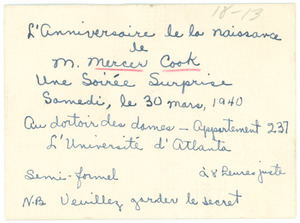 18-13
L'Anniversaire de la naissance
de
M. Mercer Cook
Une Soirée Surprise
Samedi, le 30 mars, 1940
Au dortoir des dames — Appartement 237
L'Université d'Atlanta
Semi-formel
à 8 heures juste
N.B. Veuillez garder le secret